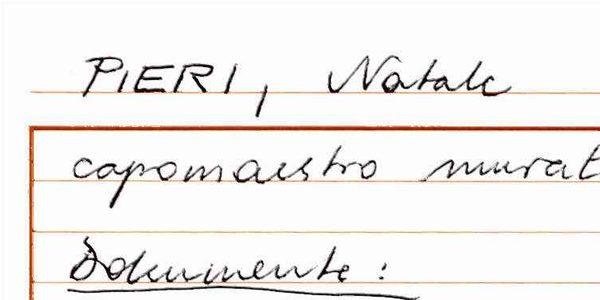 PIERI, Natale
capomaestro murat
Dokumente: